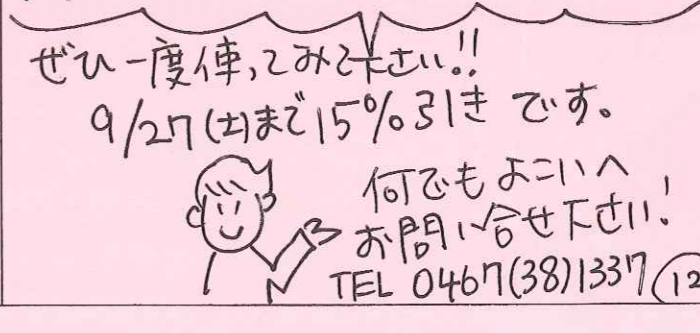 ぜひ一度使ってみて下さい!!
9/27(土)まで15%引きです。
何でもよこいへ
お問い合せ下さい!
TEL 0467(38)1337
12